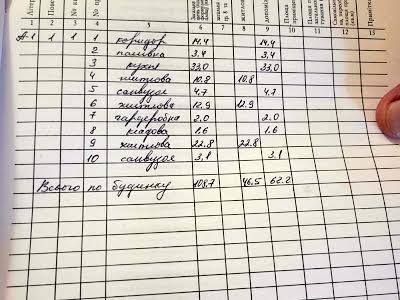 1 2 3 4 5 6 7 8 9 10 11 12 13 15
А-1 1 1 1 коридор 14.4 14.4
2 паливна 3.4 3.4
3 кухня 33.0 33.0
4 житлова 10.8 10.8
5 санвузол 4.7 4.7
6 житлова 12.9 12.9
7 гардеробна 2.0 2.0
8 кладова 1.6 1.6
9 житлова 22.8 22.8
10 санвузол 3.1 3.1
Всього по будинку 108.7 46.5 62.2